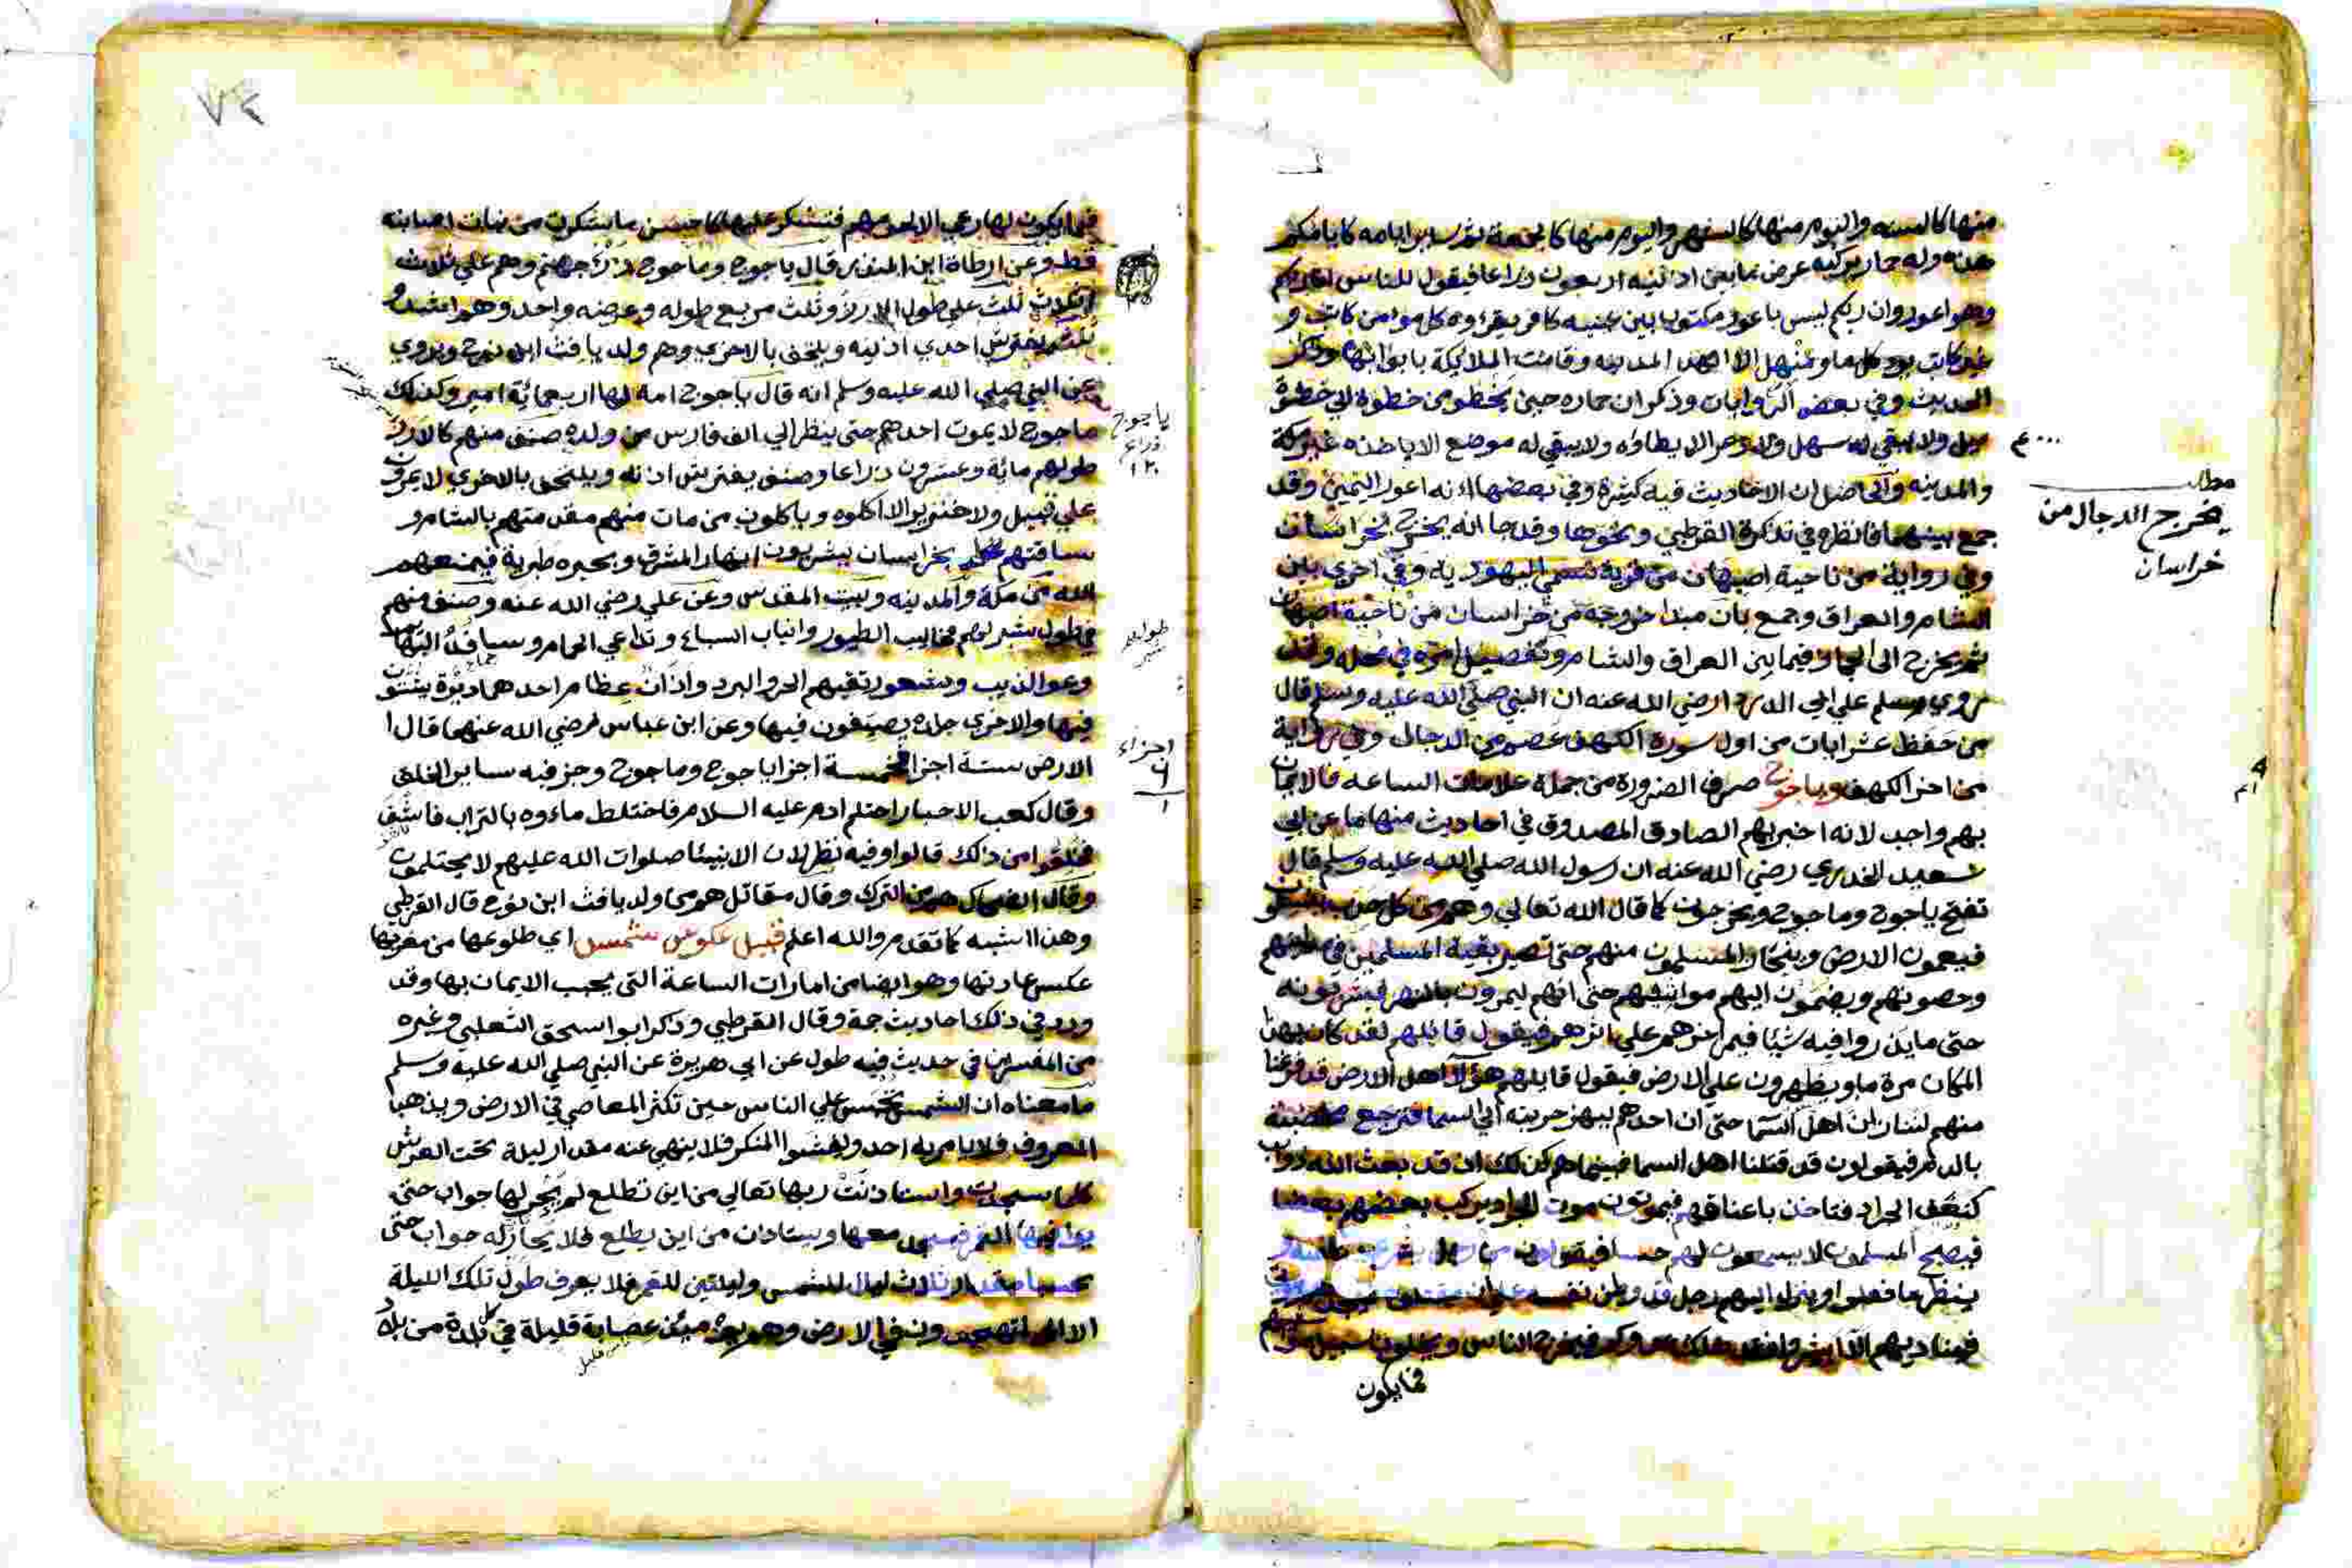 منها كالسنه واليوم منها كالشهر واليوم منها كالجمعة ثم ساير ايامه كايامكم
هذه وله حمار يركبه عرض ما بين اذنيه اربعون ذراعا فيقول للناس انا ربكم
وهو اعور وان ربكم ليس باعور مكتوب بين عينيه كافر يقراوه كل مومن كاتب و
غير كاتب يرد كل ماء ومنهل الا المدينه وقامت الملايكة بابوابها وذكر
الحديث وفي بعض الروايات وذكر ان حماره حين يخطو من خطوة الي خطوة
ميل ولا يبقي له سهل ولا وعر الا يطاؤه ولا يبقي له موضع الا ياخذه غير مكة
والمدينه والحاصل ان الاحاديث فيه كثيرة وفي بعضها انه اعور اليمين وقد
جمع بينهما فانظره في تذكرة القرطبي ونحوها وقد جا انه يخرج من خراسان
وفي رواية من ناحية اصبهان من قرية تسمي اليهودية وفي اخري بين
الشام والعراق وجمع بان مبدا خروجه من خراسان من ناحية اصبهان
ثم يخرج الى الحجاز فيما بين العراق والشام وتفصيل امره في محله وقد
روي مسلم عن ابي الدردا رضي الله عنه ان النبي صلي الله عليه وسلم قال
من حفظ عشر ايات من اول سورة الكهف عصم من الدجال وفي رواية
من اخر الكهف وياجوج صرف الضرورة من جملة علامات الساعه فالايمان
بهم واجب لانه اخبر بهم الصادق المصدوق في احاديث منها ما عن ابي
سعيد الخدري رضي الله عنه ان رسول الله صلي الله عليه وسلم قال
تفتح ياجوج وماجوج ويخرجون كما قال الله تعالي وهم من كل حدب ينسلون
فيعمون الارض وينحاز المسلمون منهم حتى تصير بقية المسلمين في مداينهم
وحصونهم ويضمون اليهم مواشيهم حتى انهم ليمرون بالنهر فيشربونه
حتى ما يذروا فيه شيا فيمر اخرهم علي اثرهم فيقول قايلهم لقد كان بهذا
المكان مرة ماء ويظهرون علي الارض فيقول قايلهم هؤلآ اهل الارض قد فرغنا
منهم لننازلن اهل السما حتى ان احدهم ليهز حربته الي السما فترجع مخضبة
بالدم فيقولون قد قتلنا اهل السما فبينما هم كذلك اذ قد بعث الله دواب
كنغف الجراد فتاخذ باعناقهم فيموتون موت الجراد يركب بعضهم بعضا
فيصبح المسلمون لا يسمعون لهم حسا فيقولون من رجل يشري نفسه و
ينظر ما فعلوا فينزل اليهم رجل قد وطن نفسه علي ان يقتلوه
فيناديهم الا ابشروا فقد هلك عدوكم فيخرج الناس ويخلون سبيل مواشيهم
فما يكون
مطلب
يخرج الدجال من
خراسان
٧٢
فما يكون لها رعي الا لحومهم فتشكر عليها كاحسن ما شكرت من نبات اصابته
قط وعن ارطاة ابن المنذر قال ياجوج وماجوج ذرء جهنم وهم علي ثلاث
اثلاث ثلث علي طول الارز وثلث مربع طوله وعرضه واحد وهو اشد و
ثلث يفترش احدي اذنيه ويلتحف بالاخري وهم ولد يافث ابن نوح وروي
عن النبي صلي الله عليه وسلم انه قال ياجوج امة لها اربعمائة امير وكذلك
ماجوج لا يموت احدهم حتى ينظر الي الف فارس من ولده صنف منهم كالارز
طولهم مائة وعشرون ذراعا وصنف يفترش اذنه ويلتحف بالاخري لا يمرون
علي فيل ولا خنزير الا اكلوه وياكلون من مات منهم مقدمتهم بالشام و
ساقتهم بخراسان يشربون انهار المشرق وبحيره طبرية فيمنعهم
الله من مكة والمدينه وبيت المقدس وعن علي رضي الله عنه وصنف منهم
في طول شبر لهم مخاليب الطيور وانياب السباع وتداعي الحمام وتسافد البهايم
وعوا الذيب وشعور تقيهم الحر والبرد واذان عظام احدهما وبرة يشتون
فيها والاخري جلده يصيفون فيها وعن ابن عباس رضي الله عنهما قال ا
الارض ستة اجزا فخمسة اجزا ياجوج وماجوج وجز فيه ساير الخلق
وقال كعب الاحبار احتلم ادم عليه السلام فاختلط ماءوه بالتراب فاسف
فخلقوا من ذلك قالوا وفيه نظر لان الانبيئا صلوات الله عليهم لا يحتلمون
وقال الضحاك هم من الترك وقال مقاتل هم من ولد يافث ابن نوح قال القرطبي
وهذا اشبه كما تقدم والله اعلم قبيل عكوس شمس اي طلوعها من مغربها
عكس عادتها وهو ايضا من امارات الساعة التي يجب الايمان بها وقد
ورد في ذلك احاديث جمة وقال القرطبي وذكر ابو اسحق الثعلبي وغيره
من المفسرين في حديث فيه طول عن ابي هريرة عن النبي صلي الله عليه وسلم
ما معناه ان الشمس تحبس علي الناس حين تكثر المعاصي في الارض ويذهب
المعروف فلا يامر به احد ويفشوا المنكر فلا ينهي عنه مقدار ليلة تحت العرش
كلما سجدت واستاذنت ربها تعالي من اين تطلع لم يجر لها جواب حتى
يوافيها القمر فيسجد معها ويستاذن من اين يطلع فلا يحار له جواب حتى
يحبسا مقدار ثلاث ليال للشمس وليلتين للقمر فلا يعرف طول تلك الليلة
الا المتهجدون في الارض وهم يومئذ عصابة قليلة في كل بلدة من بلاد
ياجوج
ذراع
١٢٠
طولهم
شبر
اجزاء
٦
١